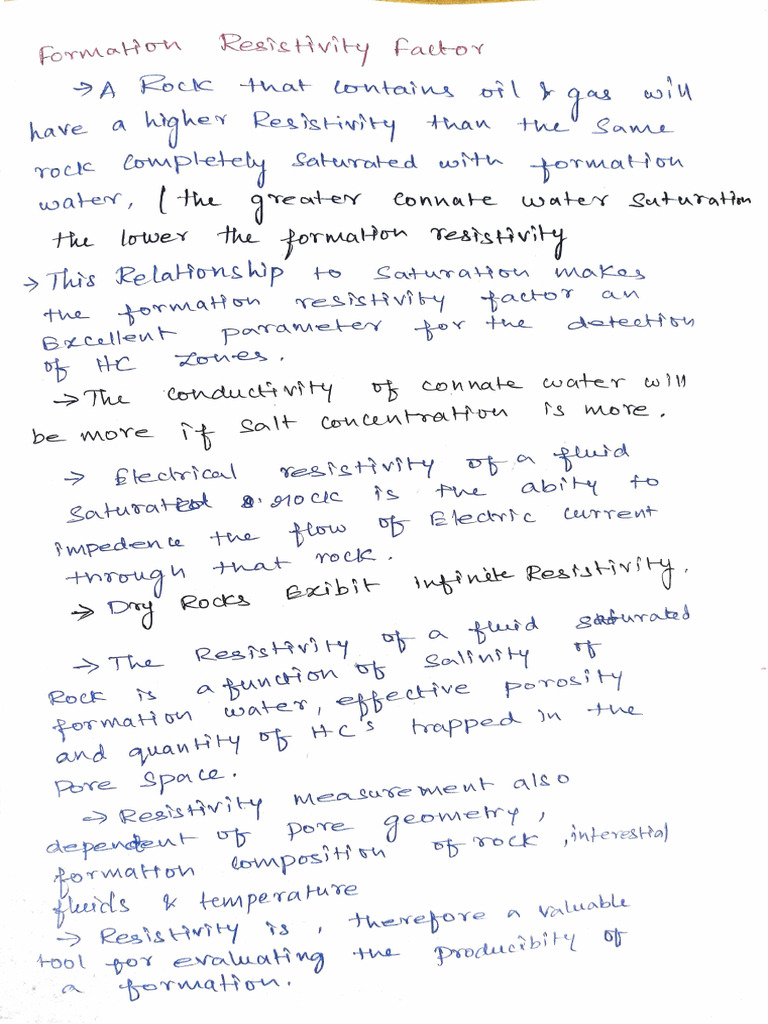 Formation Resistivity Factor
→ A Rock that contains oil & gas will
have a higher Resistivity than the same
rock completely saturated with formation
water, ( the greater connate water saturation
the lower the formation resistivity
→ This Relationship to saturation makes
the formation resistivity factor an
Excellent parameter for the detection
of HC zones.
→ The conductivity of connate water will
be more if salt concentration is more.
→ Electrical resistivity of a fluid
saturated rock is the abity to
impedence the flow of Electric current
through that rock.
→ Dry Rocks Exibit infinite Resistivity.
→ The Resistivity of a fluid saturated
Rock is a function of salinity of
formation water, effective porosity
and quantity of HC's trapped in the
Pore Space.
→ Resistivity measurement also
dependent of pore geometry,
formation composition of rock, interestial
fluids & temperature
→ Resistivity is, therefore a valuable
tool for evaluating the Producibity of
a formation.